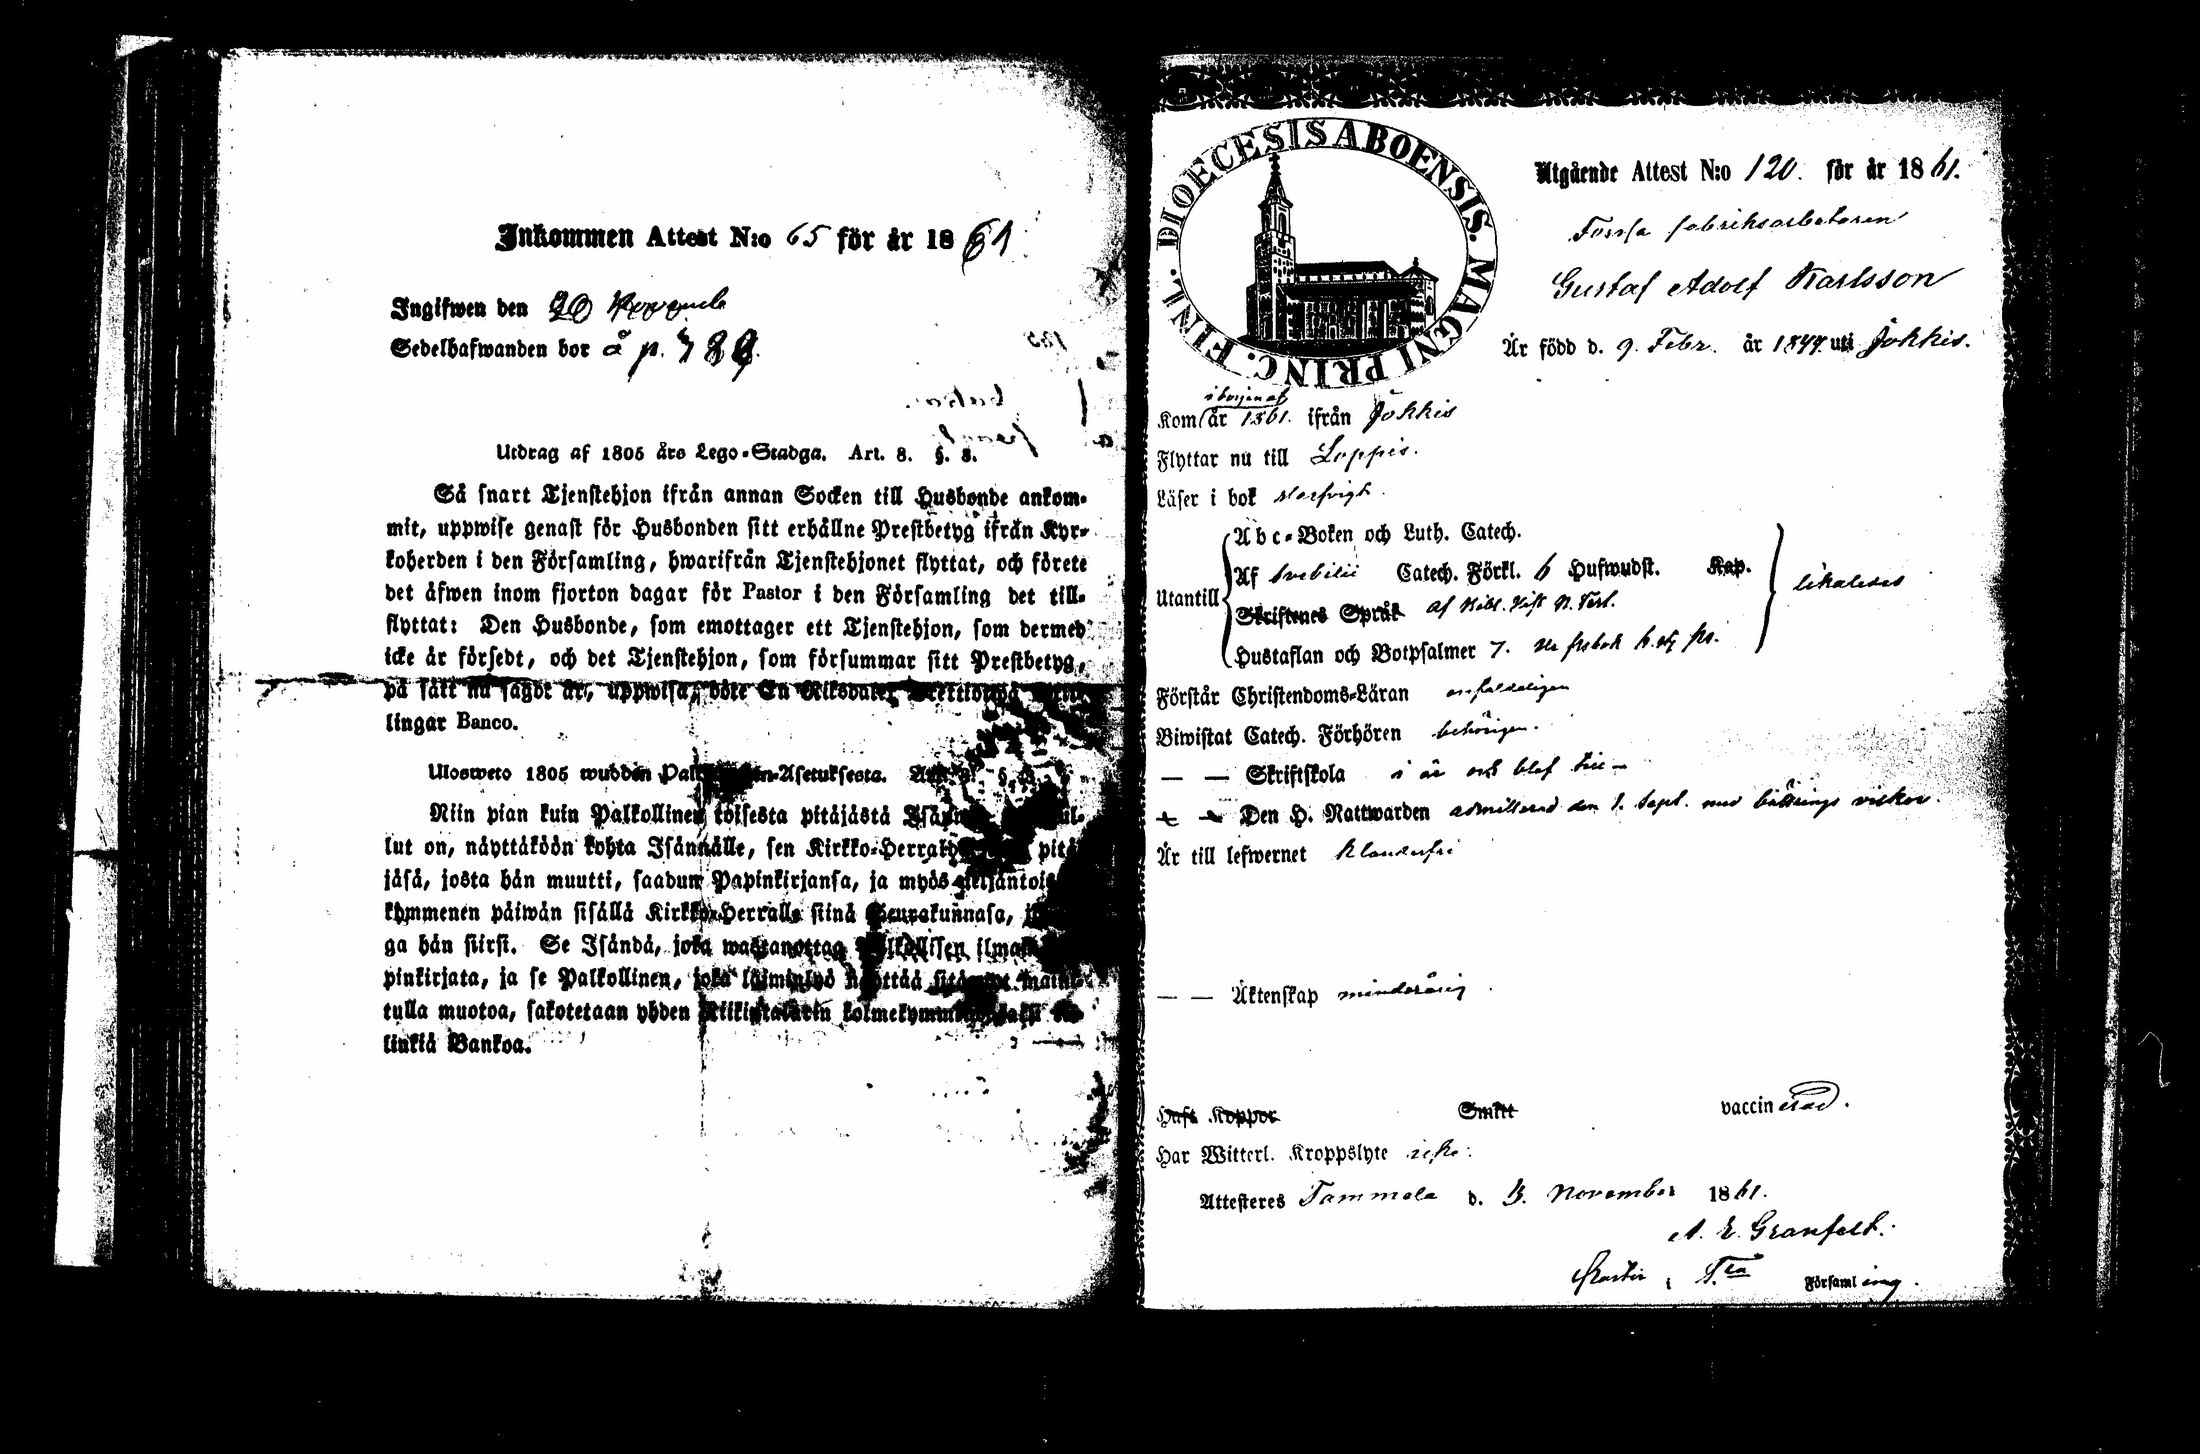 Inkommen Attest N:o 65 för år 1861
Ingifwen den 20 Novemb
Sedelhafwanden bor å p. 789.
Utdrag af 1805 års Lego-Stadga. Art. 8. §. 8.
Så snart Tjenstehjon ifrån annan Socken till Husbonde ankom-
mit, uppwise genast för Husbonden sitt erhållne Prestbetyg ifrån Kyr-
koherden i den Församling, hwarifrån Tjenstehjonet flyttat, och förete
det äfwen inom fjorton dagar för Pastor i den Församling det till-
flyttat: Den Husbonde, som emottager ett Tjenstehjon, som dermed
icke är försedt, och det Tjenstehjon, som försummar sitt Prestbetyg,
på sätt nu sagdt är, uppwisa, böte En Riksdaler
lingar Banco.
Ulosweto 1805 wuoden Asetuksesta.
Niin pian kuin Palkollinen toisesta pitäjästä
lut on, näyttäköön kohta Isännälle, sen Kirkko-Herralda
jäsä, josta hän muutti, saadun Papinkirjansa, ja myös
kymmenen päiwän sisällä Kirkko-Herralle siinä Seurakunnasa,
ga hän siirsi. Se Isändä, joka wastanottaa Palkollisen
pinkirjata, ja se Palkollinen, joka laiminlyö näyttää
tulla muotoa, sakotetaan yhden Riikintalarin
linkiä Bankoa.
DIOECESIS ABOENSIS. MAGNI PRINC. FINL.
Utgående Attest N:o 120. för år 1861.
Forssa fabriksarbetaren
Gustaf Adolf Karlsson
Är född d. 9. Febr. år 1844. uti Jokkis.
i början af
Kom år 1861. ifrån Jokkis
Flyttar nu till Loppis.
Läser i bok
Abc-Boken och Luth. Catech.
Utantill Af Svebilii Catech. Förkl. 6 Hufwudst. Kap. likaledes
Skriftenes Språk af Bibl. Hist. N. Test.
Hustaflan och Botpsalmer 7.
Förstår Christendoms-Läran enfaldeligen
Biwistat Catech. Förhören behörigen.
— — Skriftskola i år och blef till-
— — Den H. Nattwarden admitterad den 1. Sept. med bättrings vilkor.
Är till lefwernet klanderfri
— — Äktenskap minderårig
Haft Koppor Smitt vaccinerad.
Har Witterl. Kroppslyte icke.
Attesteres Tammela d. November 1861.
A. E. Granfelt.
i T:la Församling.